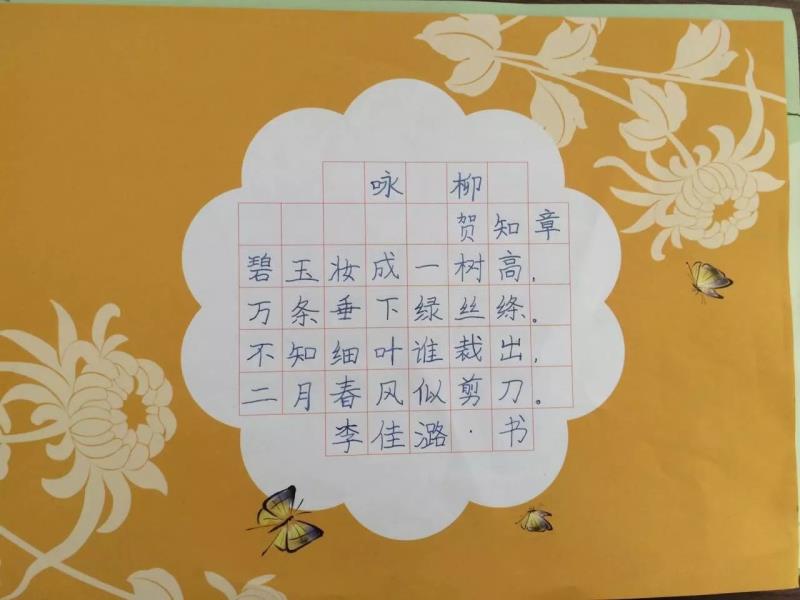 咏柳
贺知章
碧玉妆成一树高，
万条垂下绿丝绦。
不知细叶谁裁出，
二月春风似剪刀。
李佳潞·书